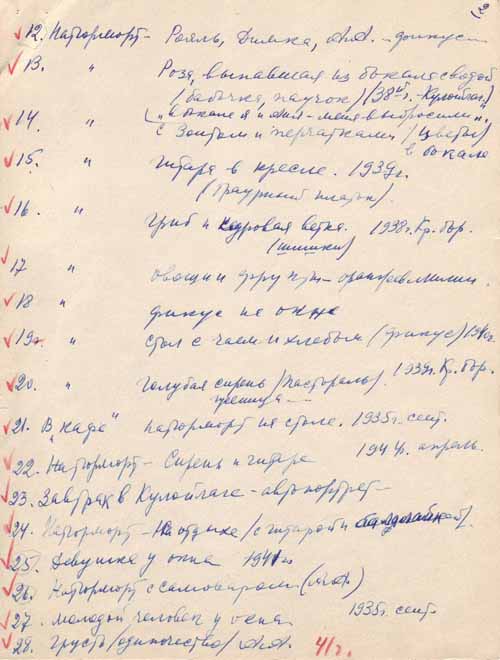 12. Натюрморт - Рояль, Димка, А.А. - фикус -
13. " Роза, выпавшая из бокала с водой
/бабочка, паучок/ (38 г. - Кулойлаг.)
14. " с Зонтом и перчатками / Цветы
в бокале
15. " гитара в кресле. 1939 г.
(Траурный платок).
16. " гриб и кедровая ветка. 1938 г. Кр. бор.
(шишки)
17 " овощи и фрукты
18 " фикус на окне
19. " стол с чаем и хлебом (фикус)
20. " голубая сирень /пастораль/. 1939 г. Кр. бор.
21. В "кафе" натюрморт на столе. 1935 г. сент.
22. Натюрморт - Сирень и гитара 1944 г. апрель.
23. Завтрак в Кулойлаге - автопортрет -
24. Натюрморт - На отдыхе /с гитарой и
25. Девушка у окна 1941 г.
26. Натюрморт с самоваром
27. молодой человек у окна 1935 г. сент.
28. грусть /одиночество/ А.А. 41 г.